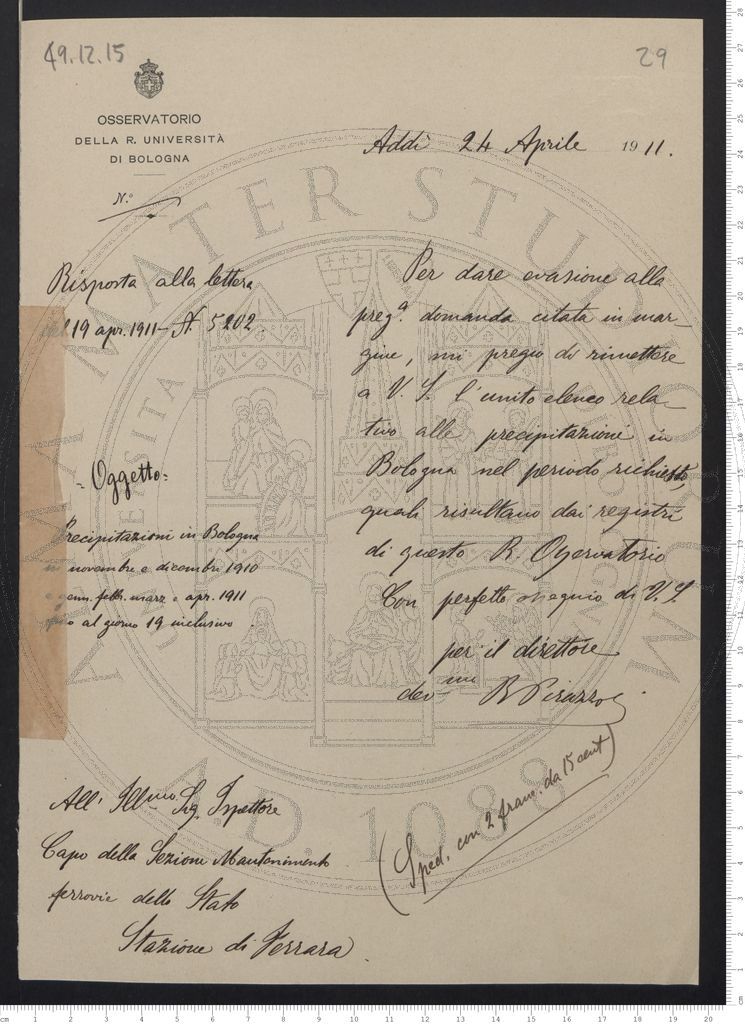 49.12.15
29
OSSERVATORIO
DELLA R. UNIVERSITÀ
DI BOLOGNA
N.°
Addì 24 Aprile 1911.
Risposta alla lettera
del 19 apr. 1911 - N. 5202.
Per dare evasione alla
preg.ª domanda citata in mar-
gine, mi pregio di rimettere
a V. S. l'unito elenco rela-
tivo alle precipitazioni in
Bologna nel periodo richiesto
quali risultano dai registri
di questo R. Osservatorio
Con perfetto ossequio di V. S.
per il direttore
dev mo R Pirazzoli
- Oggetto -
Precipitazioni in Bologna
in novembre e dicembre 1910
e genn. febb. marz e apr. 1911
fino al giorno 19 inclusivo.
(Sped. con 2 franc. da 15 cent)
All' Ill.mo Sig. Ispettore
Capo della Sezione Mantenimento
ferrovie dello Stato
Stazione di Ferrara.
ALMA MATER STUDIORUM
A.D. 1088